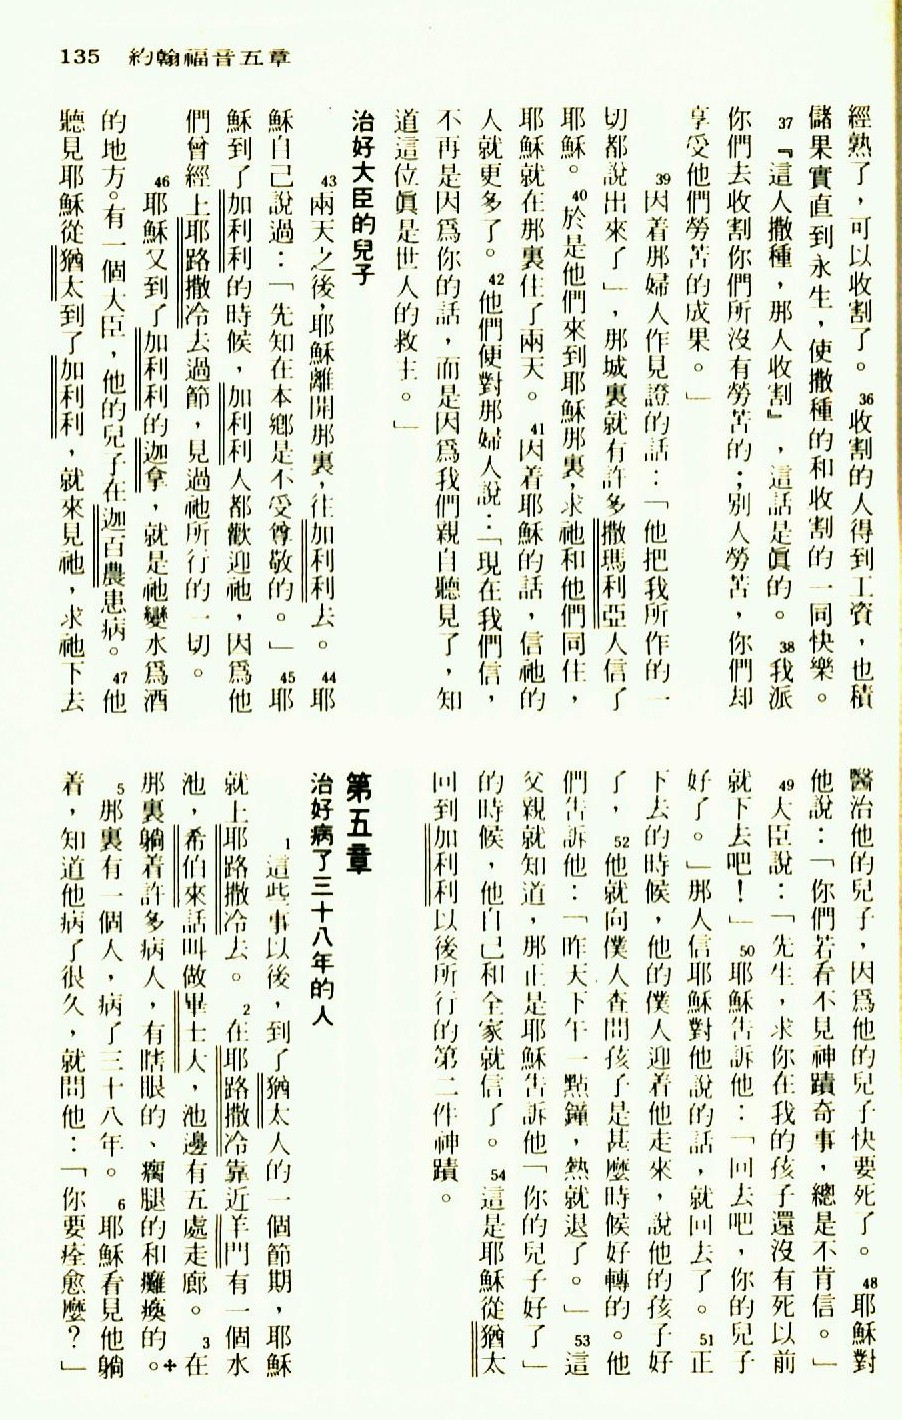 135 約翰福音五章
經熟了，可以收割了。36收割的人得到工資，也積
儲果實直到永生，使撒種的和收割的一同快樂。
37『這人撒種，那人收割』，這話是眞的。38我派
你們去收割你們所沒有勞苦的；別人勞苦，你們却
享受他們勞苦的成果。」
39因着那婦人作見證的話：「他把我所作的一
切都說出來了」，那城裏就有許多撒瑪利亞人信了
耶穌。40於是他們來到耶穌那裏，求祂和他們同住，
耶穌就在那裏住了兩天。41因着耶穌的話，信祂的
人就更多了。42他們便對那婦人說：「現在我們信，
不再是因爲你的話，而是因爲我們親自聽見了，知
道這位眞是世人的救主。」
治好大臣的兒子
43兩天之後，耶穌離開那裏，往加利利去。44耶
穌自己說過：「先知在本鄉是不受尊敬的。」45耶
穌到了加利利的時候，加利利人都歡迎祂，因爲他
們曾經上耶路撒冷去過節，見過祂所行的一切。
46耶穌又到了加利利的迦拿，就是祂變水爲酒
的地方。有一個大臣，他的兒子在迦百農患病。47他
聽見耶穌從猶太到了加利利，就來見祂，求祂下去
醫治他的兒子，因爲他的兒子快要死了。48耶穌對
他說：「你們若看不見神蹟奇事，總是不肯信。」
49大臣說：「先生，求你在我的孩子還沒有死以前
就下去吧！」50耶穌告訴他：「回去吧，你的兒子
好了。」那人信耶穌對他說的話，就回去了。51正
下去的時候，他的僕人迎着他走來，說他的孩子好
了，52他就向僕人查問孩子是甚麼時候好轉的。他
們告訴他：「昨天下午一點鐘，熱就退了。」53這
父親就知道，那正是耶穌告訴他「你的兒子好了」
的時候，他自己和全家就信了。54這是耶穌從猶太
回到加利利以後所行的第二件神蹟。
第五章
治好病了三十八年的人
1這些事以後，到了猶太人的一個節期，耶穌
就上耶路撒冷去。2在耶路撒冷靠近羊門有一個水
池，希伯來話叫做畢士大，池邊有五處走廊。3在
那裏躺着許多病人，有瞎眼的、瘸腿的和癱瘓的。✢
5那裏有一個人，病了三十八年。6耶穌看見他躺
着，知道他病了很久，就問他：「你要痊愈麼？」